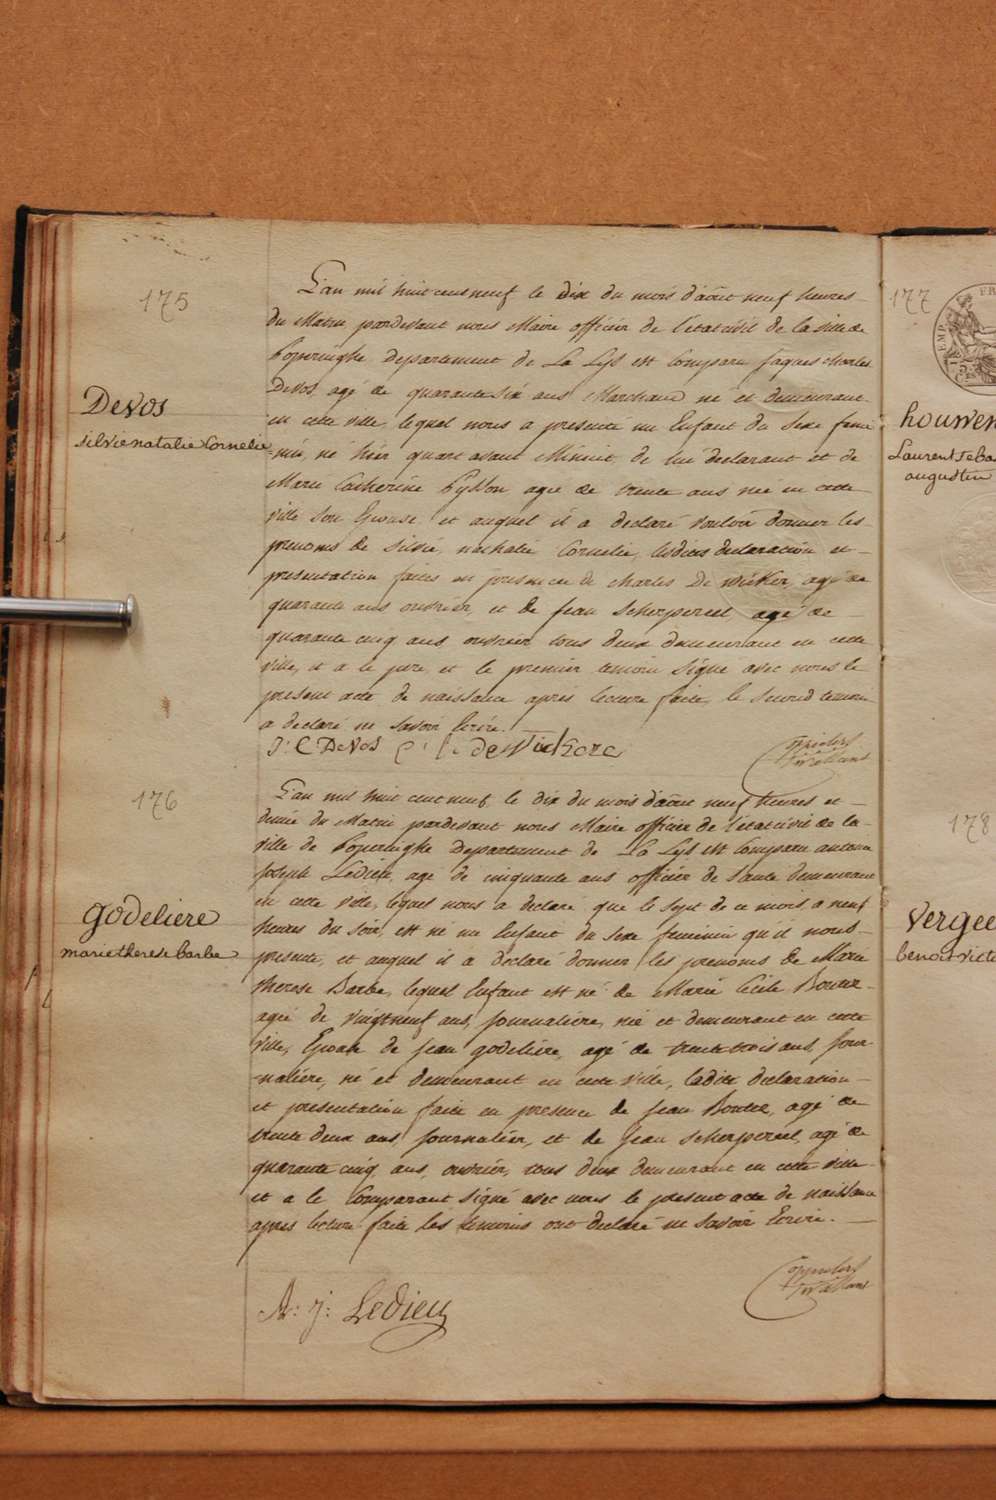 175
L'an mil huit cent neuf le dix du mois d'août neuf heures
du Matin pardevant nous Maire officier de l'état civil de la ville de
Poperinghe departement de La Lys est Comparu Jaques Charles
DeVos, agé de quarante six ans Marchand né et demeurant
DeVos
en cette ville, lequel nous a presenté un Enfant du Sexe femi
silvie natalie Cornelie
-nin, né hier quart avant Minuit de lui declarant et de
Marie Catherine agée de trente ans née en cette
ville Son Epouse, et auquel il a declaré vouloir donner les
prenoms de Silvie, nathalie Cornelie, lesdites declaration et
presentation faites en presence de Charles De Wicker, agé de
quarante ans ouvrier, et de Jean Scherpereel, agé de
quarante cinq ans, ouvrier tous deux demeurant en cette
ville, et a le pere, et le premier temoin Signé avec nous le
present acte de naissance après lecture faite, le Second temoin
a declaré ne savoir Ecrire.
J: C DeVos
176
L'an mil huit cent neuf le dix du mois d'août neuf heures et
demie du Matin pardevant nous Maire officier de l'état civil de la
ville de Poperinghe departement de La Lys est Comparu antoine
Joseph Ledieu, agé de cinquante ans officier de Santé demeurant
en cette ville, lequel nous a declaré que le Sept de ce mois a neuf
godeliere
heures du Soir, est né un Enfant du Sexe feminin qu'il nous
marie therese barbe
presente, et auquel il a declaré donner les prenoms de Marie
therese Barbe, lequel Enfant est né de Marie Cecile
agée de vingt neuf ans, Journaliere, née et demeurant en cette
ville, Epouse de Jean godeliere, agé de trente trois ans, Jour
-naliére, né et demeurant en cette ville, ladite declaration
et presentation faite en presence de Jean agé de
trente deux ans, Journalier, et de Jean Scherpereel, agé de
quarante cinq ans, ouvrier, tous deux demeurant en cette ville
et a le Comparant Signé avec nous le present acte de naissance
apres lecture faite les temoins ont declaré ne Savoir Ecrire.
A: J: Ledieu
177
houwen
Laurent seba
augustin
178
Vergee
benoit victo